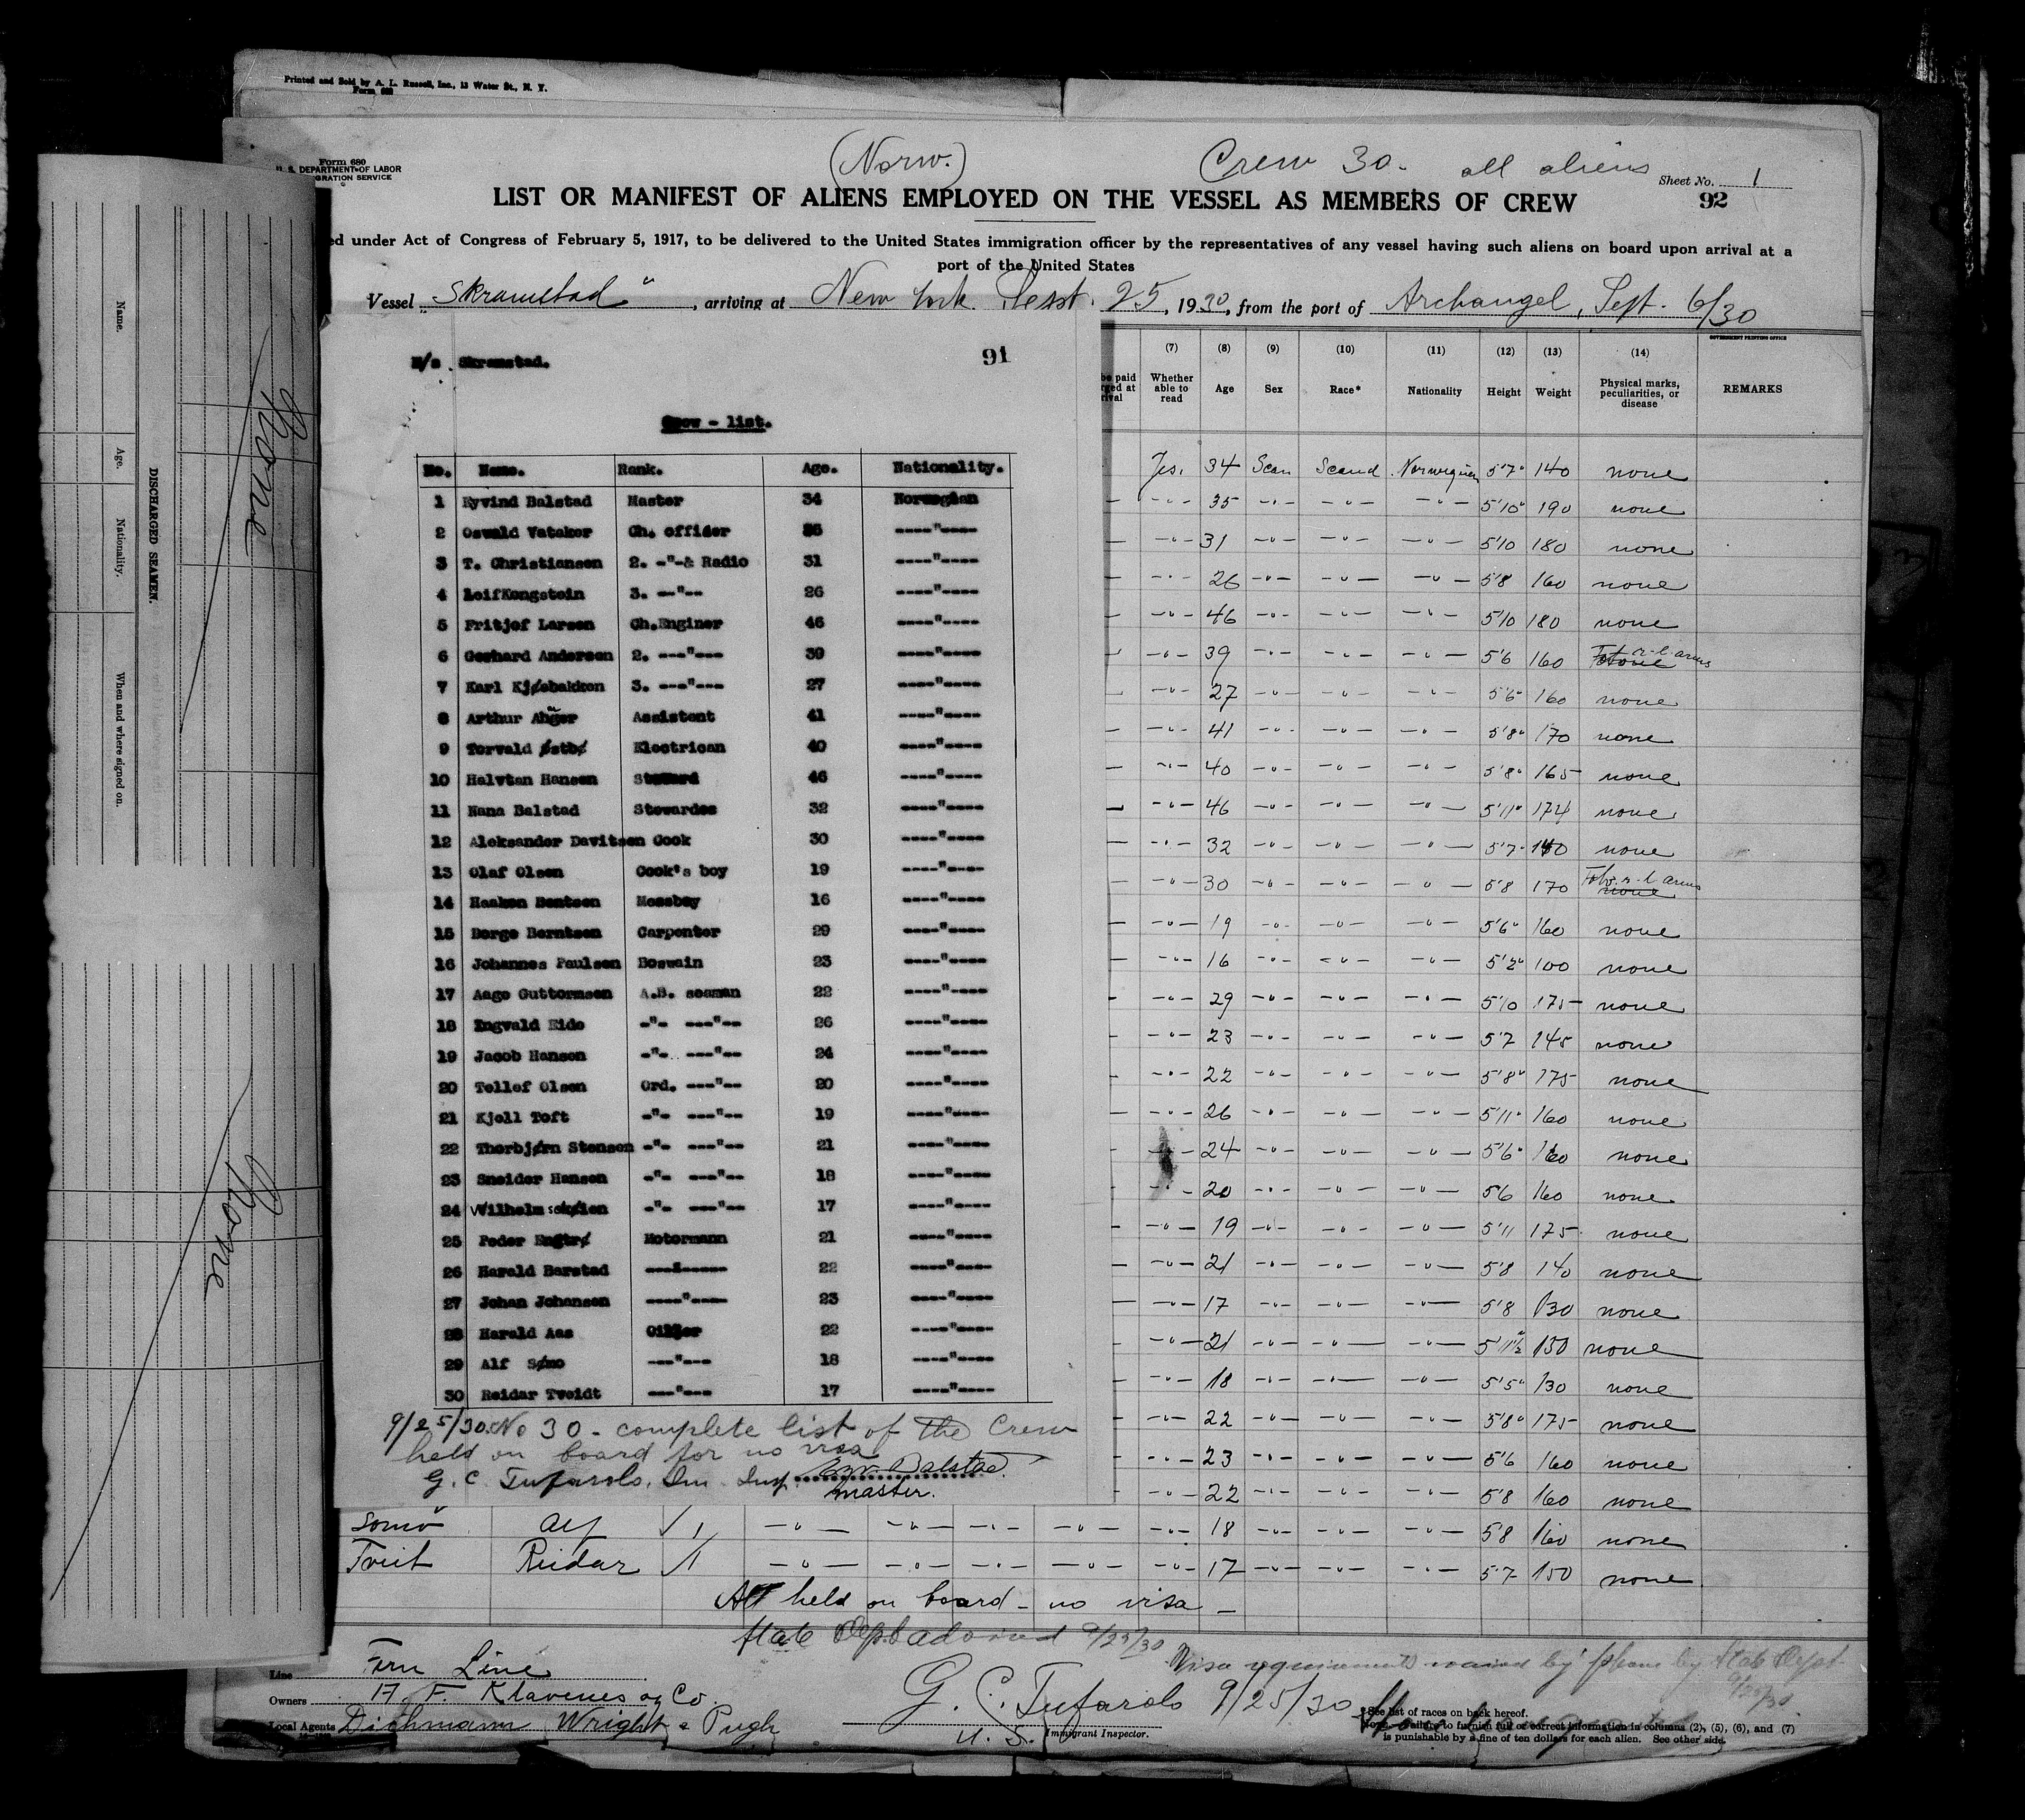 Printed and Sold by A. L. Russell, Inc., 13 Water St., N. Y.
Form 680
Form 680
U. S. DEPARTMENT OF LABOR
IGRATION SERVICE
(Norw.)
Crew 30. all aliens
Sheet No. 1
LIST OR MANIFEST OF ALIENS EMPLOYED ON THE VESSEL AS MEMBERS OF CREW
92
ed under Act of Congress of February 5, 1917, to be delivered to the United States immigration officer by the representatives of any vessel having such aliens on board upon arrival at a
port of the United States
Vessel "Skramstad", arriving at New York Sept. 25, 1930, from the port of Archangel, Sept. 6/30
M/s Skramstad.
91
Crew - list.
No. Name. Rank. Age. Nationality.
1 Eyvind Balstad Master 34 Norwegian
2 Oswald Vataker Ch. offider 35 ----"----
3 T. Christiansen 2. -"-& Radio 31 ----"----
4 LeifKongstein 3. --"-- 26 ----"----
5 Fritjof Larsen Ch.Enginer 46 ----"----
6 Gerhard Andersen 2. ---"--- 39 ----"----
7 Karl Kjøsbakken 3. ---"--- 27 ----"----
8 Arthur Assistent 41 ----"----
9 Torvald Østbø Electrican 40 ----"----
10 Halvtan Hansen Steward 46 ----"----
11 Nana Balstad Stewardes 32 ----"----
12 Aleksander Davitsen Cook 30 ----"----
13 Olaf Olsen Cook's boy 19 ----"----
14 Haakon Bentsen Messboy 16 ----"----
15 Borge Berntsen Carpenter 29 ----"----
16 Johannes Paulsen Boswain 23 ----"----
17 Aage Guttormsen A.B. seaman 22 ----"----
18 Ingvald Eide -"- ---"-- 26 ----"----
19 Jacob Hansen -"- ---"-- 24 ----"----
20 Tellef Olsen Ord. ---"-- 20 ----"----
21 Kjell Toft -"- ---"-- 19 ----"----
22 Thorbjørn Stensen -"- ---"-- 21 ----"----
23 Sneider Hansen -"- ---"-- 18 ----"----
24 Wilhelm -"- ---"-- 17 ----"----
25 Peder Engtrø Motormann 21 ----"----
26 Harald Barstad ----"----- 22 ----"----
27 Johan Johansen ----"---- 23 ----"----
28 Harald Aas Oiler 22 ----"----
29 Alf Sømo ---"--- 18 ----"----
30 Reidar Tveidt ---"--- 17 ----"----
9/25/30. No 30 - complete list of the Crew
held on board for no visa
G. C. Tufarolo, Im. Insp. Balstad.
master.
be paid
rged at
rival
(7) Whether able to read
(8) Age
(9) Sex
(10) Race*
(11) Nationality
(12) Height
(13) Weight
(14) Physical marks, peculiarities, or disease
GOVERNMENT PRINTING OFFICE
REMARKS
Yes. 34 Scan Scand Norwegian 5'7" 140 none
-"- 35 -"- -"- -"- 5'10" 190 none
-"- 31 -"- -"- -"- 5'10 180 none
-"- 26 -"- -"- -"- 5'8 160 none
-"- 46 -"- -"- -"- 5'10 180 none
-"- 39 -"- -"- -"- 5'6 160 r-l-arms
-"- 27 -"- -"- -"- 5'6" 160 none
-"- 41 -"- -"- -"- 5'8" 170 none
-"- 40 -"- -"- -"- 5'8" 165 none
-"- 46 -"- -"- -"- 5'11" 174 none
-"- 32 -"- -"- -"- 5'7" none
-"- 30 -"- -"- -"- 5'8 170 r-l arms none
-"- 19 -"- -"- -"- 5'6" 160 none
-"- 16 -"- -"- -"- 5'2" 100 none
-"- 29 -"- -"- -"- 5'10 175 none
-"- 23 -"- -"- -"- 5'7 145 none
-"- 22 -"- -"- -"- 5'8" 175 none
-"- 26 -"- -"- -"- 5'11" 160 none
-"- 24 -"- -"- -"- 5'6" 160 none
-"- 20 -"- -"- -"- 5'6 160 none
-"- 19 -"- -"- -"- 5'11 175 none
-"- 21 -"- -"- -"- 5'8 140 none
-"- 17 -"- -"- -"- 5'8 130 none
-"- 21 -"- -"- -"- 5'11½" 150 none
-"- 18 -"- -"- -"- 5'5" 130 none
-"- 22 -"- -"- -"- 5'8" 175 none
-"- 23 -"- -"- -"- 5'6 160 none
-"- 22 -"- -"- -"- 5'8 160 none
Somö Alf √ 1 -"- -"- -"- -"- -"- 18 -"- -"- -"- 5'8 160 none
Tveit Reidar √ 1 -"- -"- -"- -"- -"- 17 -"- -"- -"- 5'7 150 none
All held on board - no visa -
State Dept advised 9/25/30
Visa requirements waived by phone by State Dept
9/25/30
Line Fern Line
Owners A. F. Klavenes og Co.
Local Agents Dichmann Wright & Pugh
G. C. Tufarolo 9/25/30
U. S. Immigrant Inspector.
* See list of races on back hereof.
Note.—Failure to furnish full or correct information in columns (2), (5), (6), and (7)
is punishable by a fine of ten dollars for each alien. See other side.
DISCHARGED SEAMEN.
Name. Age. Nationality. When and where signed on.
None
None